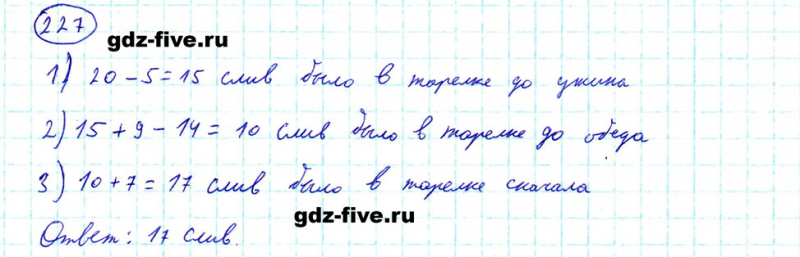 227
gdz-five.ru
1) 20 - 5 = 15 слив было в тарелке до ужина
2) 15 + 9 - 14 = 10 слив было в тарелке до обеда
3) 10 + 7 = 17 слив было в тарелке сначала
gdz-five.ru
Ответ: 17 слив.